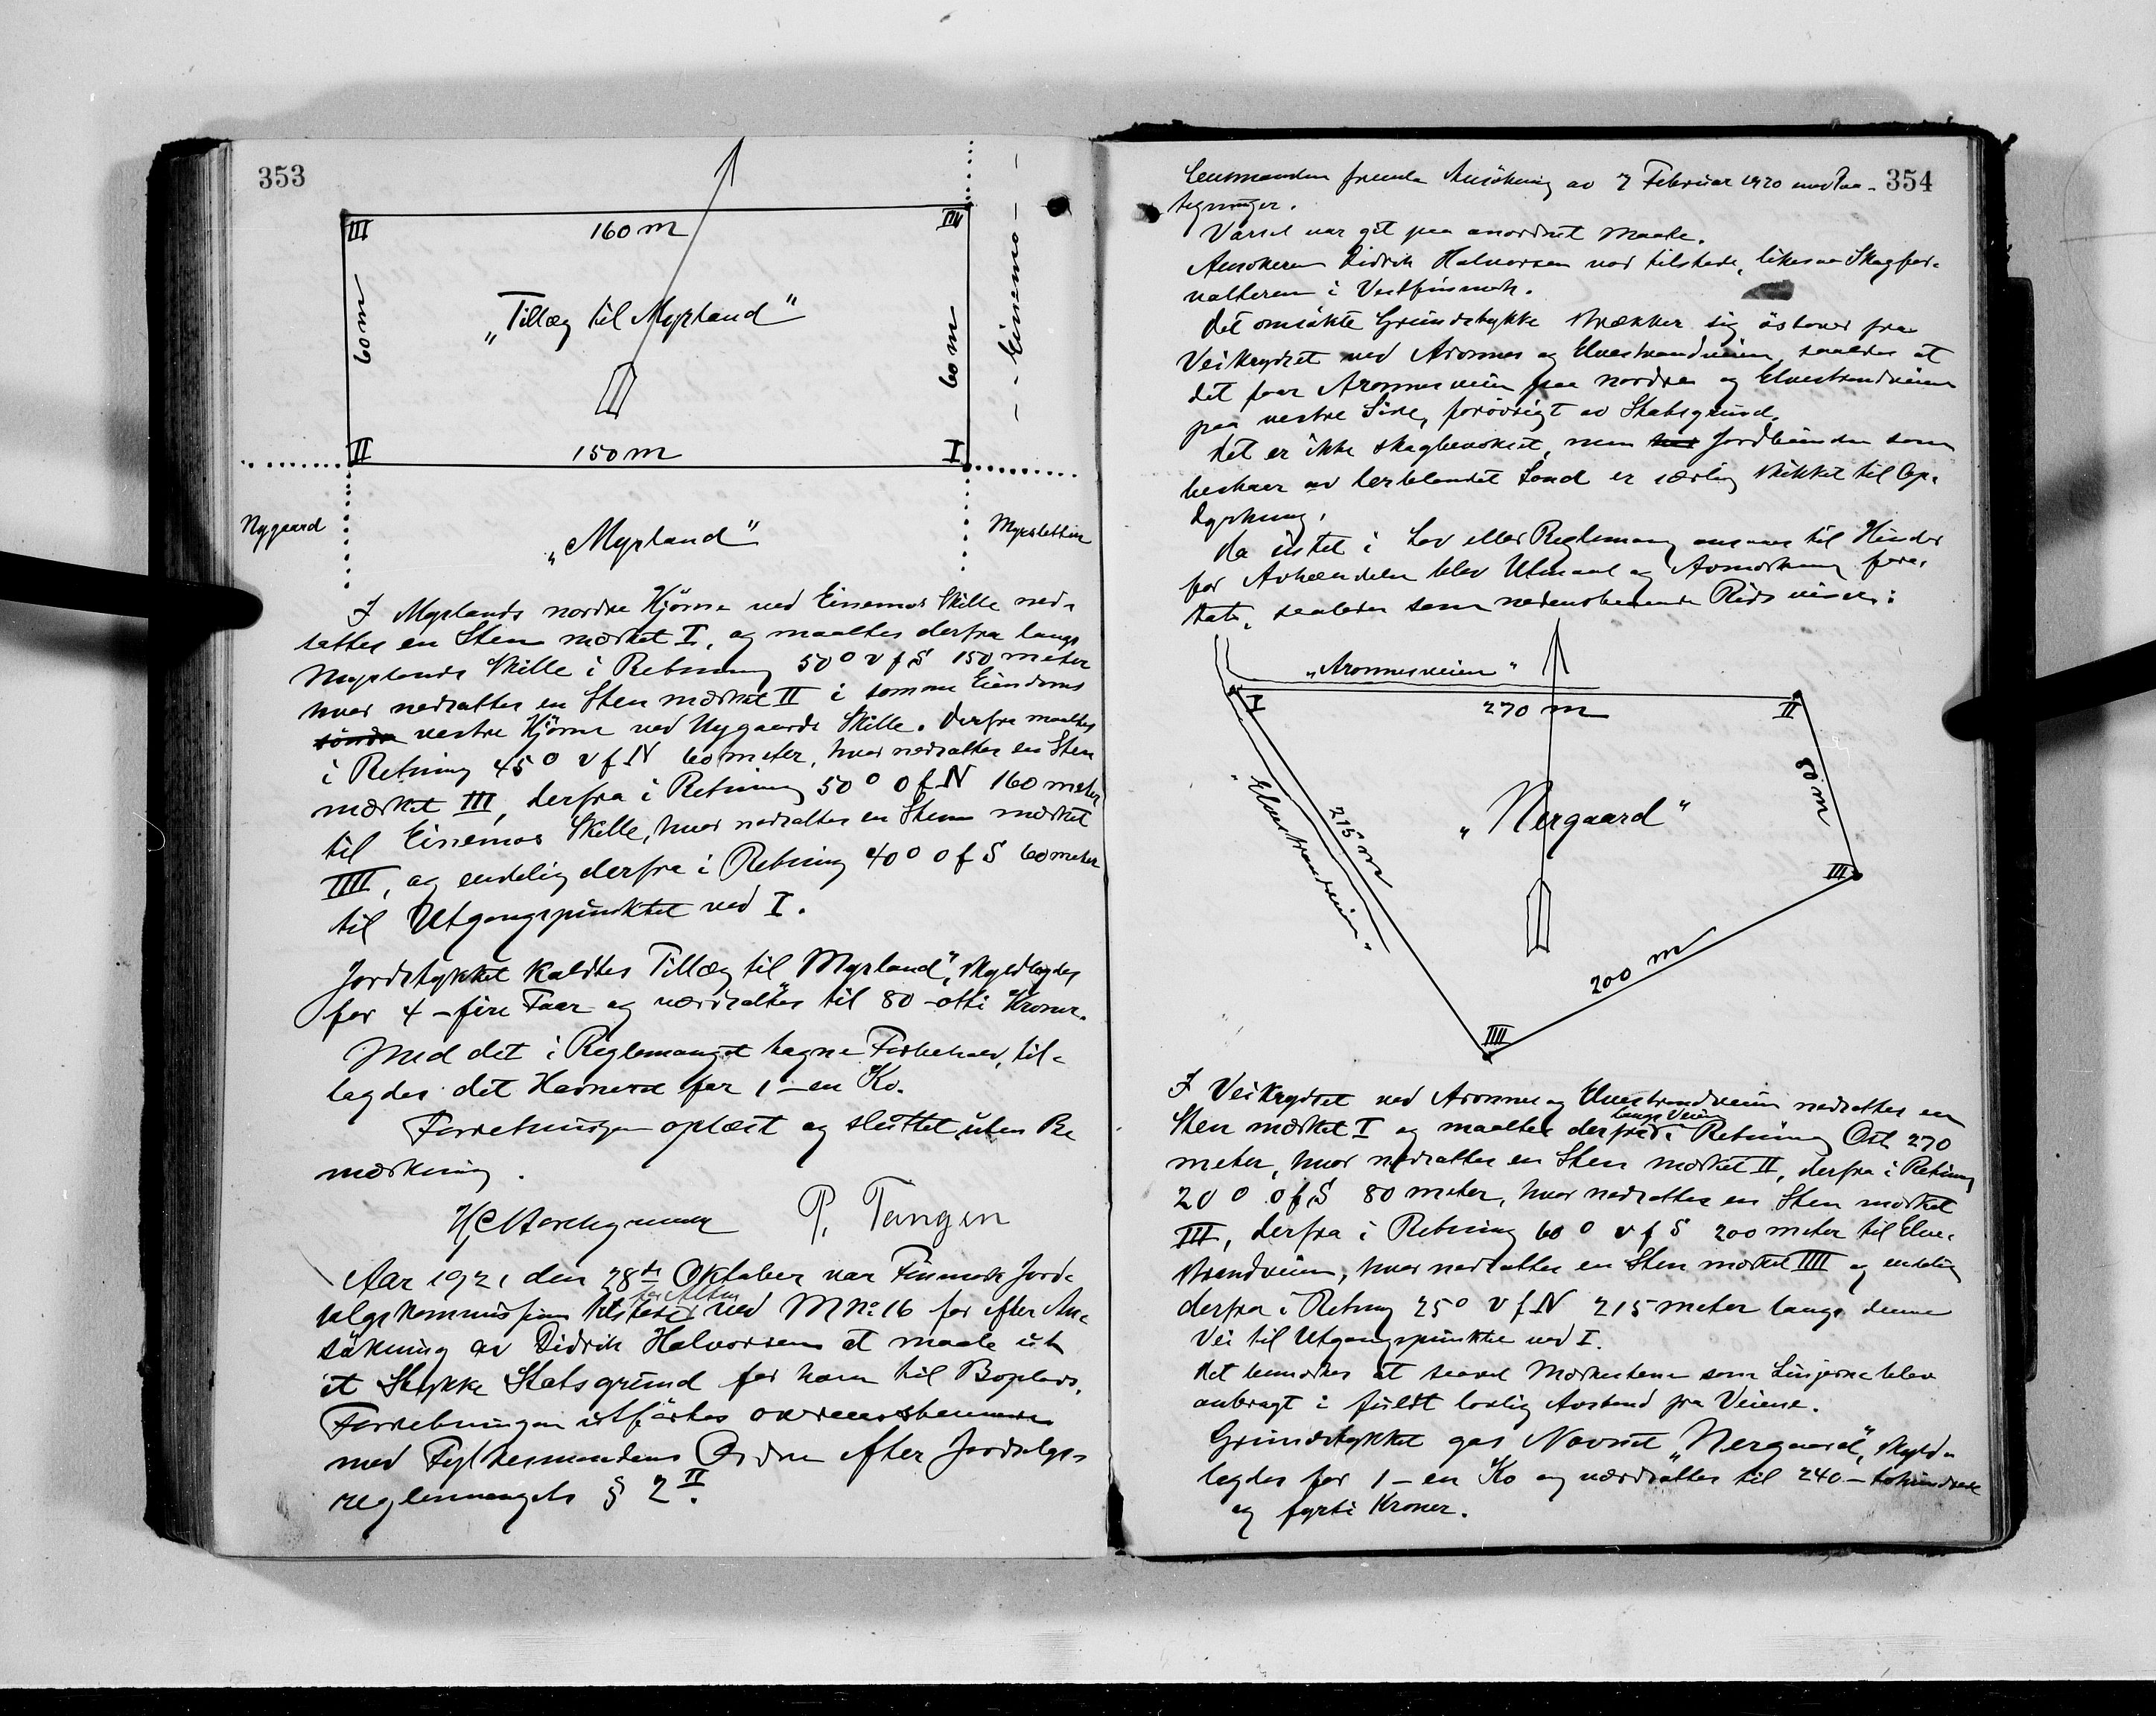 353
III
160 m
IIII
60 m
„Tillæg til Myrland"
60 m
Einemo
II
150 m
I
Nygaard
„Myrland"
Myrsletten
I Myrlands nordre Hjörne ved Einemos Skille ned-
sattes en Sten mærket I, og maaltes derfra langs
Myrlands Skille i Retning 50° v f S 150 meter
hvor nedsattes en Sten mærket II i samme Eiendoms
söndre vestre Hjörne ved Nygaards Skille. Derfra maaltes
i Retning 45° v f N 60 meter, hvor nedsattes en Sten
mærket III, derfra i Retning 50° o f N 160 meter
til Einemos Skille, hvor nedsattes en Sten mærket
IIII, og endelig derfra i Retning 40° o f S 60 meter
til Utgangspunktet ved I.
Jordstykket kaldtes Tillæg til „Myrland", skyldlagdes
for 4 - fire Faar og værdsattes til 80 - otti Kroner.
Med det i Reglemanget tagne Forbehold, til-
lagdes det Havneret for 1 - en Ko.
Forretningen oplæst og sluttet uten Be
mærkning.
P. Tangen
Aar 1921 den 28de Oktober var Finmark Jord-
for Alten
salgskommission tilstede ved M No: 16 for efter An-
sökning av Didrik Halvorsen at maale ut
et Stykke Statsgrund for ham til Boplads.
Forretningen utförtes overensstemmende
med Fylkesmandens Ordre efter Jordsalgs-
reglemangets § 2 II.
354
Lensmanden fremla Ansökning av 7 Februar 1920 med Paa-
tegninger.
Varsel var git paa anordnet Maate.
Ansökeren Didrik Halvorsen var tilstede, likesaa Skogfor-
valteren i Vestfinmark.
Det omsökte Grundstykke strækker sig östover fra
Veikrydset ved Aronnes og Elvestrandveien, saaledes at
det faar Aronnesveien paa nordre og Elvestrandveien
paa vestre Side, forövrigt av Statsgrund.
Det er ikke skogbevokset, men Jordbunden som
bestaar av lerblandet Sand er særlig skikket til Op-
dyrkning.
Da intet i Lov eller Reglemang ansaaes til Hinder
for Avhændelse blev Utmaal og Avmerkning fore-
tat, saaledes som nedenstaaende Rids viser:
„Aronnesveien"
I
270 m
II
80 m
„Elvestrandveien"
215 m
„Nergaard"
III
200 m
IIII
I Veikrydset ved Aronnes og Elvestrandveien nedsattes en
langs Veien
Sten mærket I og maaltes derfra i Retning Ost 270
meter, hvor nedsattes en Sten mærket II, derfra i Retning
20° o f S 80 meter, hvor nedsattes en Sten mærket
III, derfra i Retning 60° v f S 200 meter til Elve-
strandveien, hvor nedsattes en Sten mærket IIII og endelig
derfra i Retning 25° v f N 215 meter langs denne
Vei til Utgangspunktet ved I.
Det bemerkes at saavel Merkestene som Linjerne blev
anbragt i fuldt lovlig Avstand fra Veiene.
Grundstykket gas Navnet „Nergaard", skyld-
lagdes for 1 - en Ko og værdsattes til 240 - tohundrede
og fyrti Kroner.